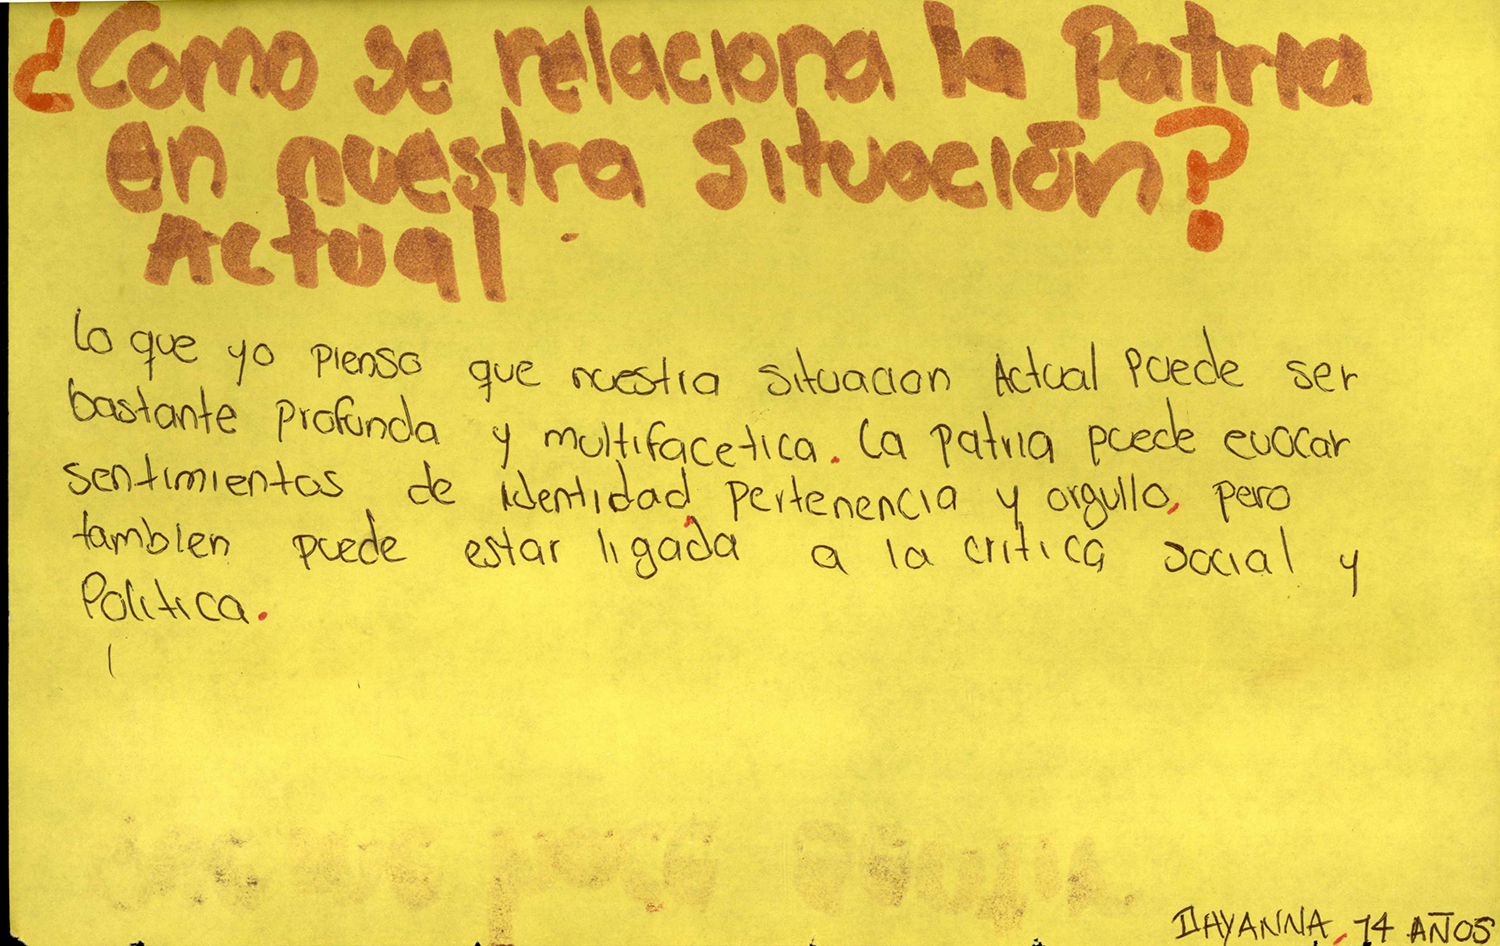 ¿Como se relaciona la Patria
en nuestra situación?
Actual
Lo que yo pienso que nuestra situacion Actual Puede ser
bastante Profunda y multifacetica. La patria puede evocar
sentimientos de identidad, pertenencia y orgullo, pero
tambien puede estar ligada a la critica social y
Politica.
DAYANNA, 14 AÑOS